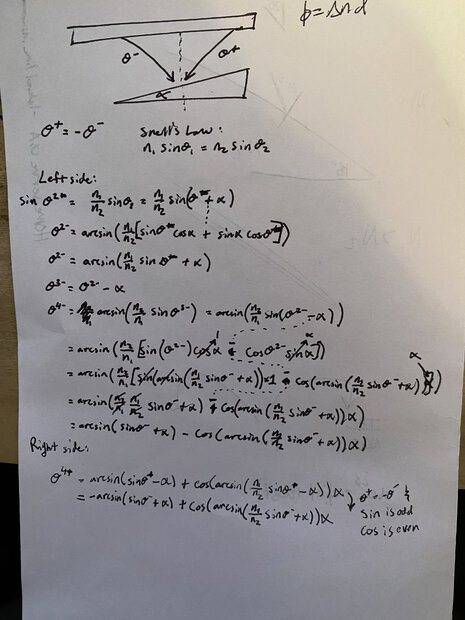 ϕ = Δnd
θ⁻ θ⁺
α
θ⁺ = -θ⁻ Snell's Law:
n₁ sinθ₁ = n₂ sinθ₂
Left side:
sin θ²⁻ = n₁/n₂ sinθ₁ = n₁/n₂ sin(θ⁻ + α)
θ²⁻ = arcsin(n₁/n₂[sinθ⁻ cosα + sinα cosθ⁻])
θ²⁻ = arcsin(n₁/n₂ sinθ⁻ + α)
θ³⁻ = θ²⁻ - α
θ⁴⁻ = arcsin(n₂/n₁ sin θ³⁻) = arcsin(n₂/n₁ sin(θ²⁻ - α))
= arcsin(n₂/n₁ [sin(θ²⁻)cosα - cosθ²⁻ sinα])
= arcsin(n₂/n₁[sin(arcsin(n₁/n₂ sinθ⁻ + α))×1 - cos(arcsin(n₁/n₂ sinθ⁻ + α))α])
= arcsin(n₂/n₁ n₁/n₂ sinθ⁻ + α) - cos(arcsin(n₁/n₂ sinθ⁻ + α))α)
= arcsin(sinθ⁻ + α) - cos(arcsin(n₁/n₂ sinθ⁻ + α))α)
Right side:
θ⁴⁺ = arcsin(sinθ⁺ - α) + cos(arcsin(n₁/n₂ sinθ⁺ - α))α
= -arcsin(sinθ⁻ + α) + cos(arcsin(n₁/n₂ sinθ⁻ + α))α
θ⁺ = -θ⁻ &
sin is odd
cos is even